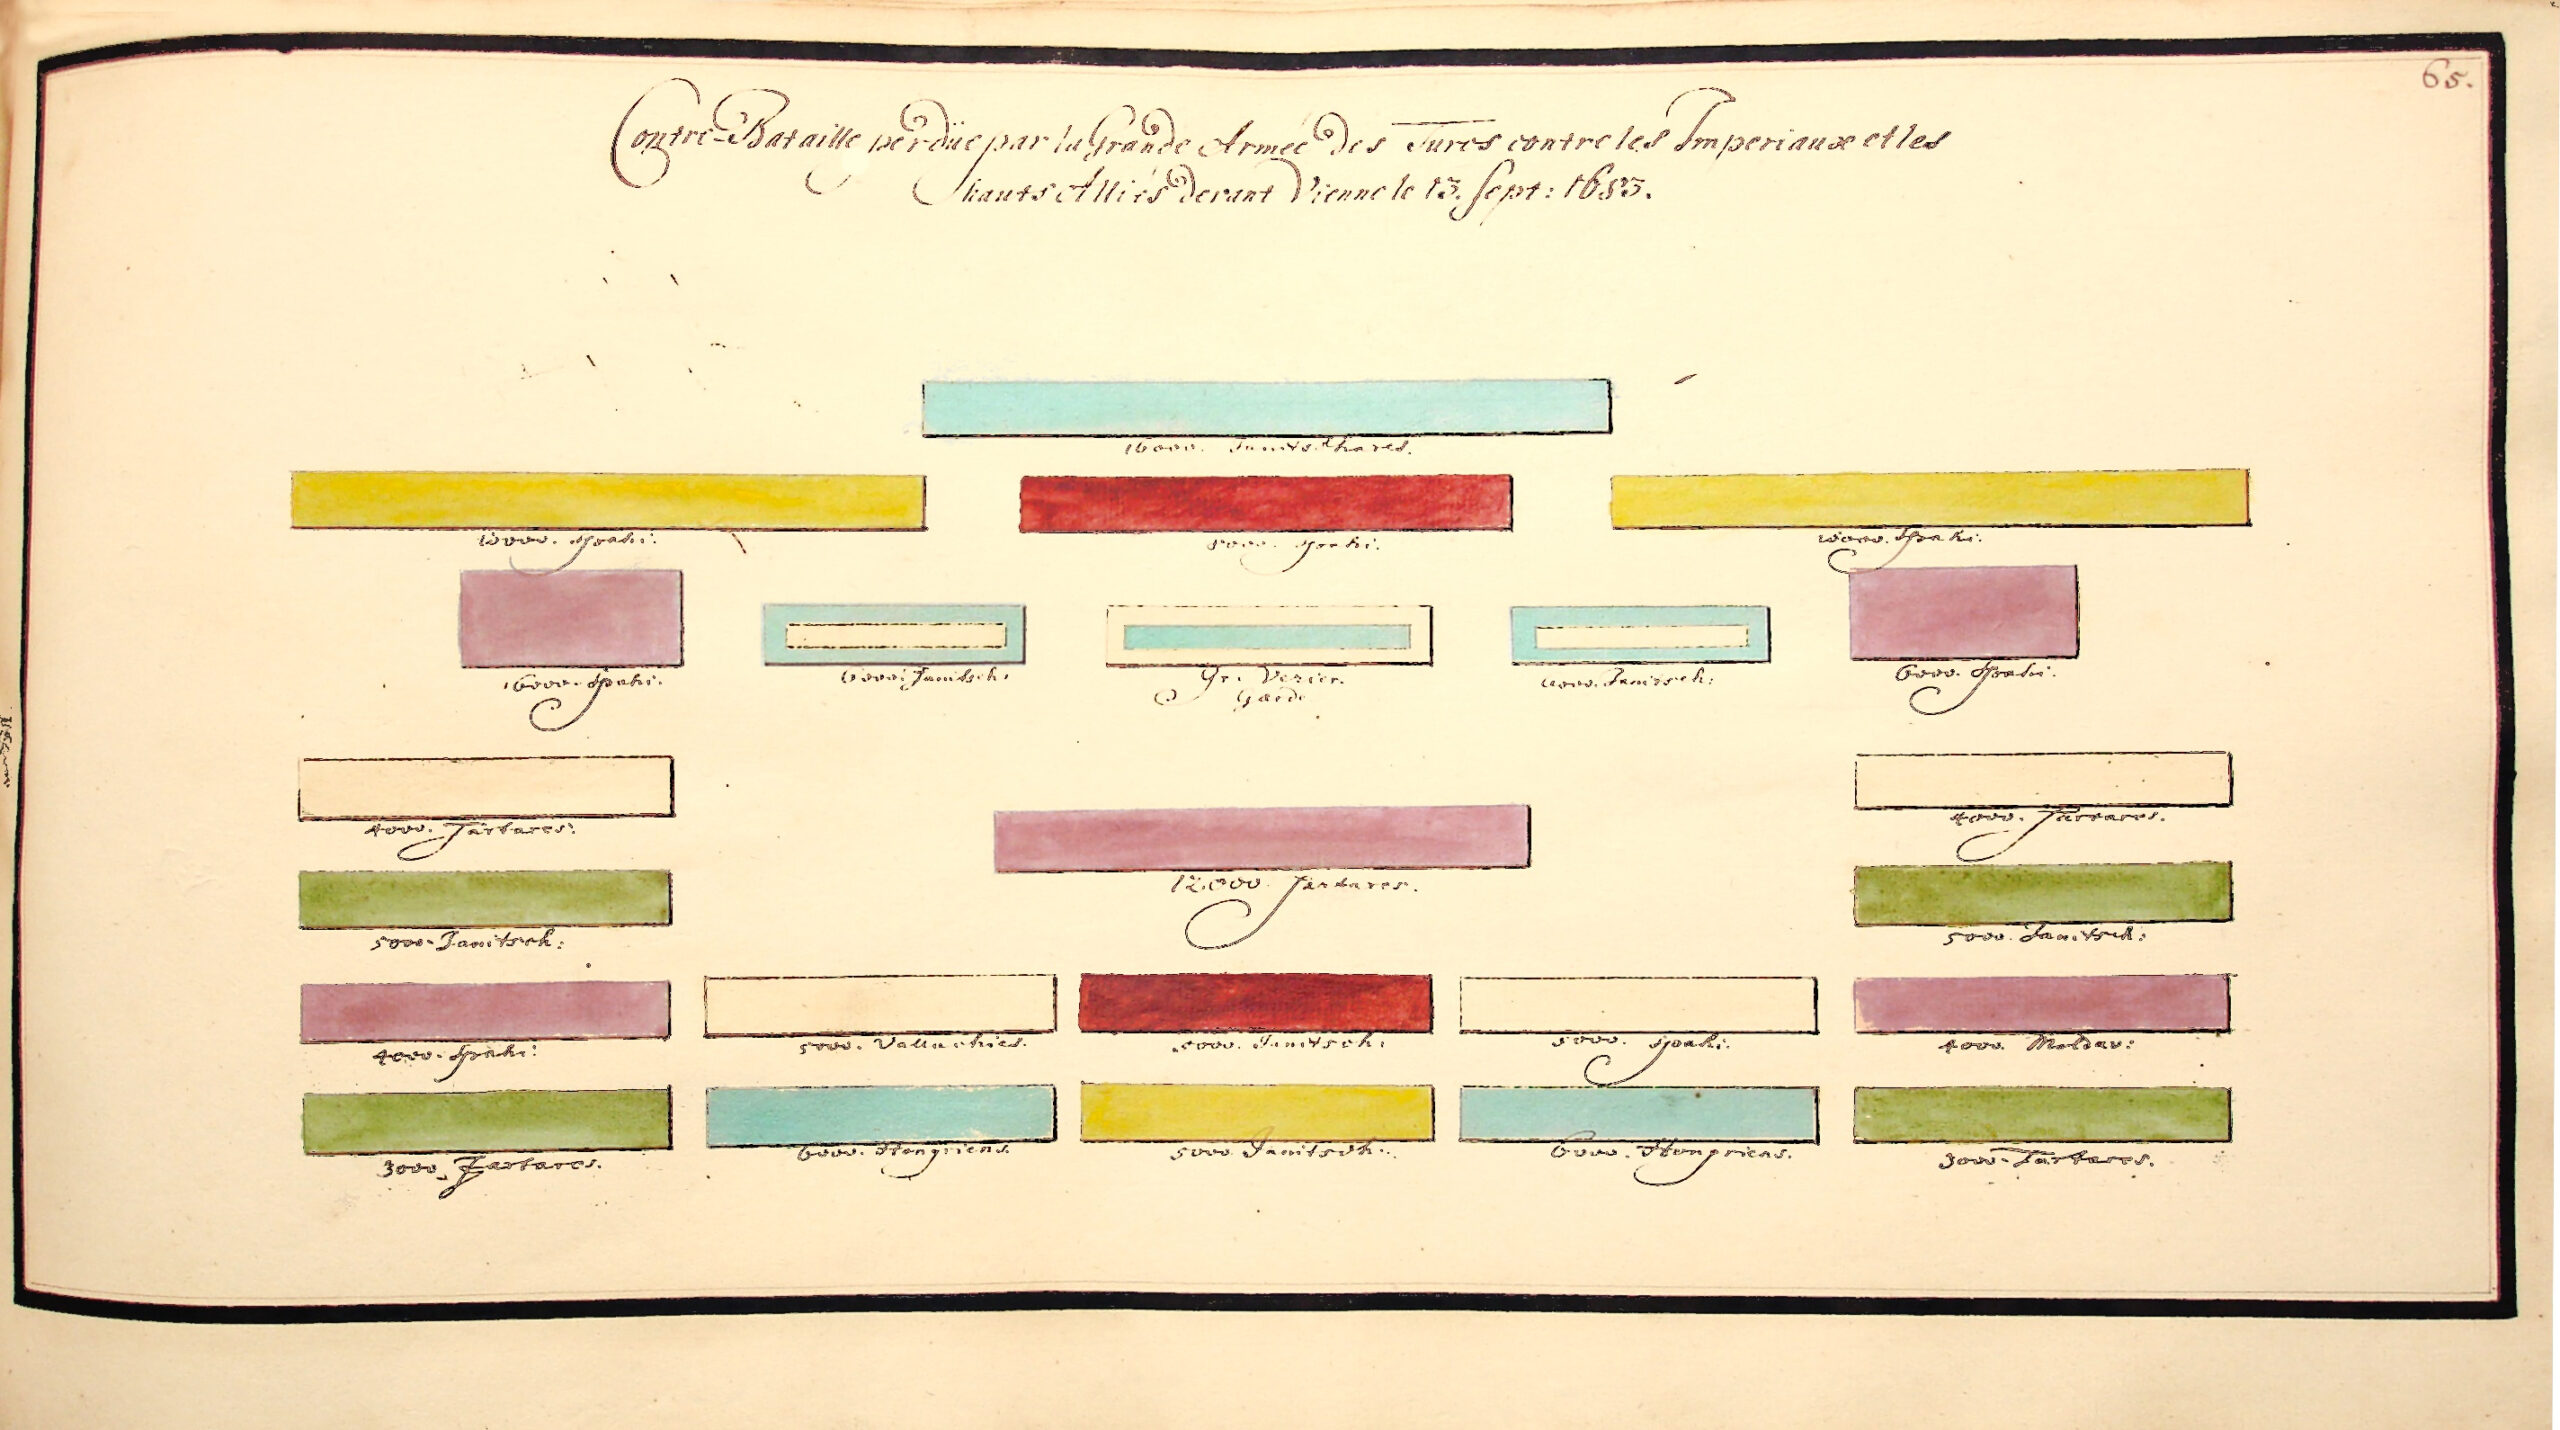 65.
Contre-Bataille perdüe par la Grande Armée des Turcs contre les Imperiaux et les
hauts Alliés devant Vienne le 13. Sept: 1683.
16000. Janitschares.
10000. Spahi:
8000. Spahi.
10000. Spahi:
6000. Spahi.
Janitsch:
Gr. Vezier.
Garde
Janitsch:
6000. Spahi.
4000. Tartares:
4000. Tartares.
12000. Tartares.
5000. Janitsch:
5000. Janitsch:
4000. Spahi:
5000. Vallachies.
Janitsch:
5000. Spahi:
4000. Moldav:
3000. Tartares.
6000. Hongriens.
5000. Janitsch:
6000. Hongriens.
3000. Tartares.